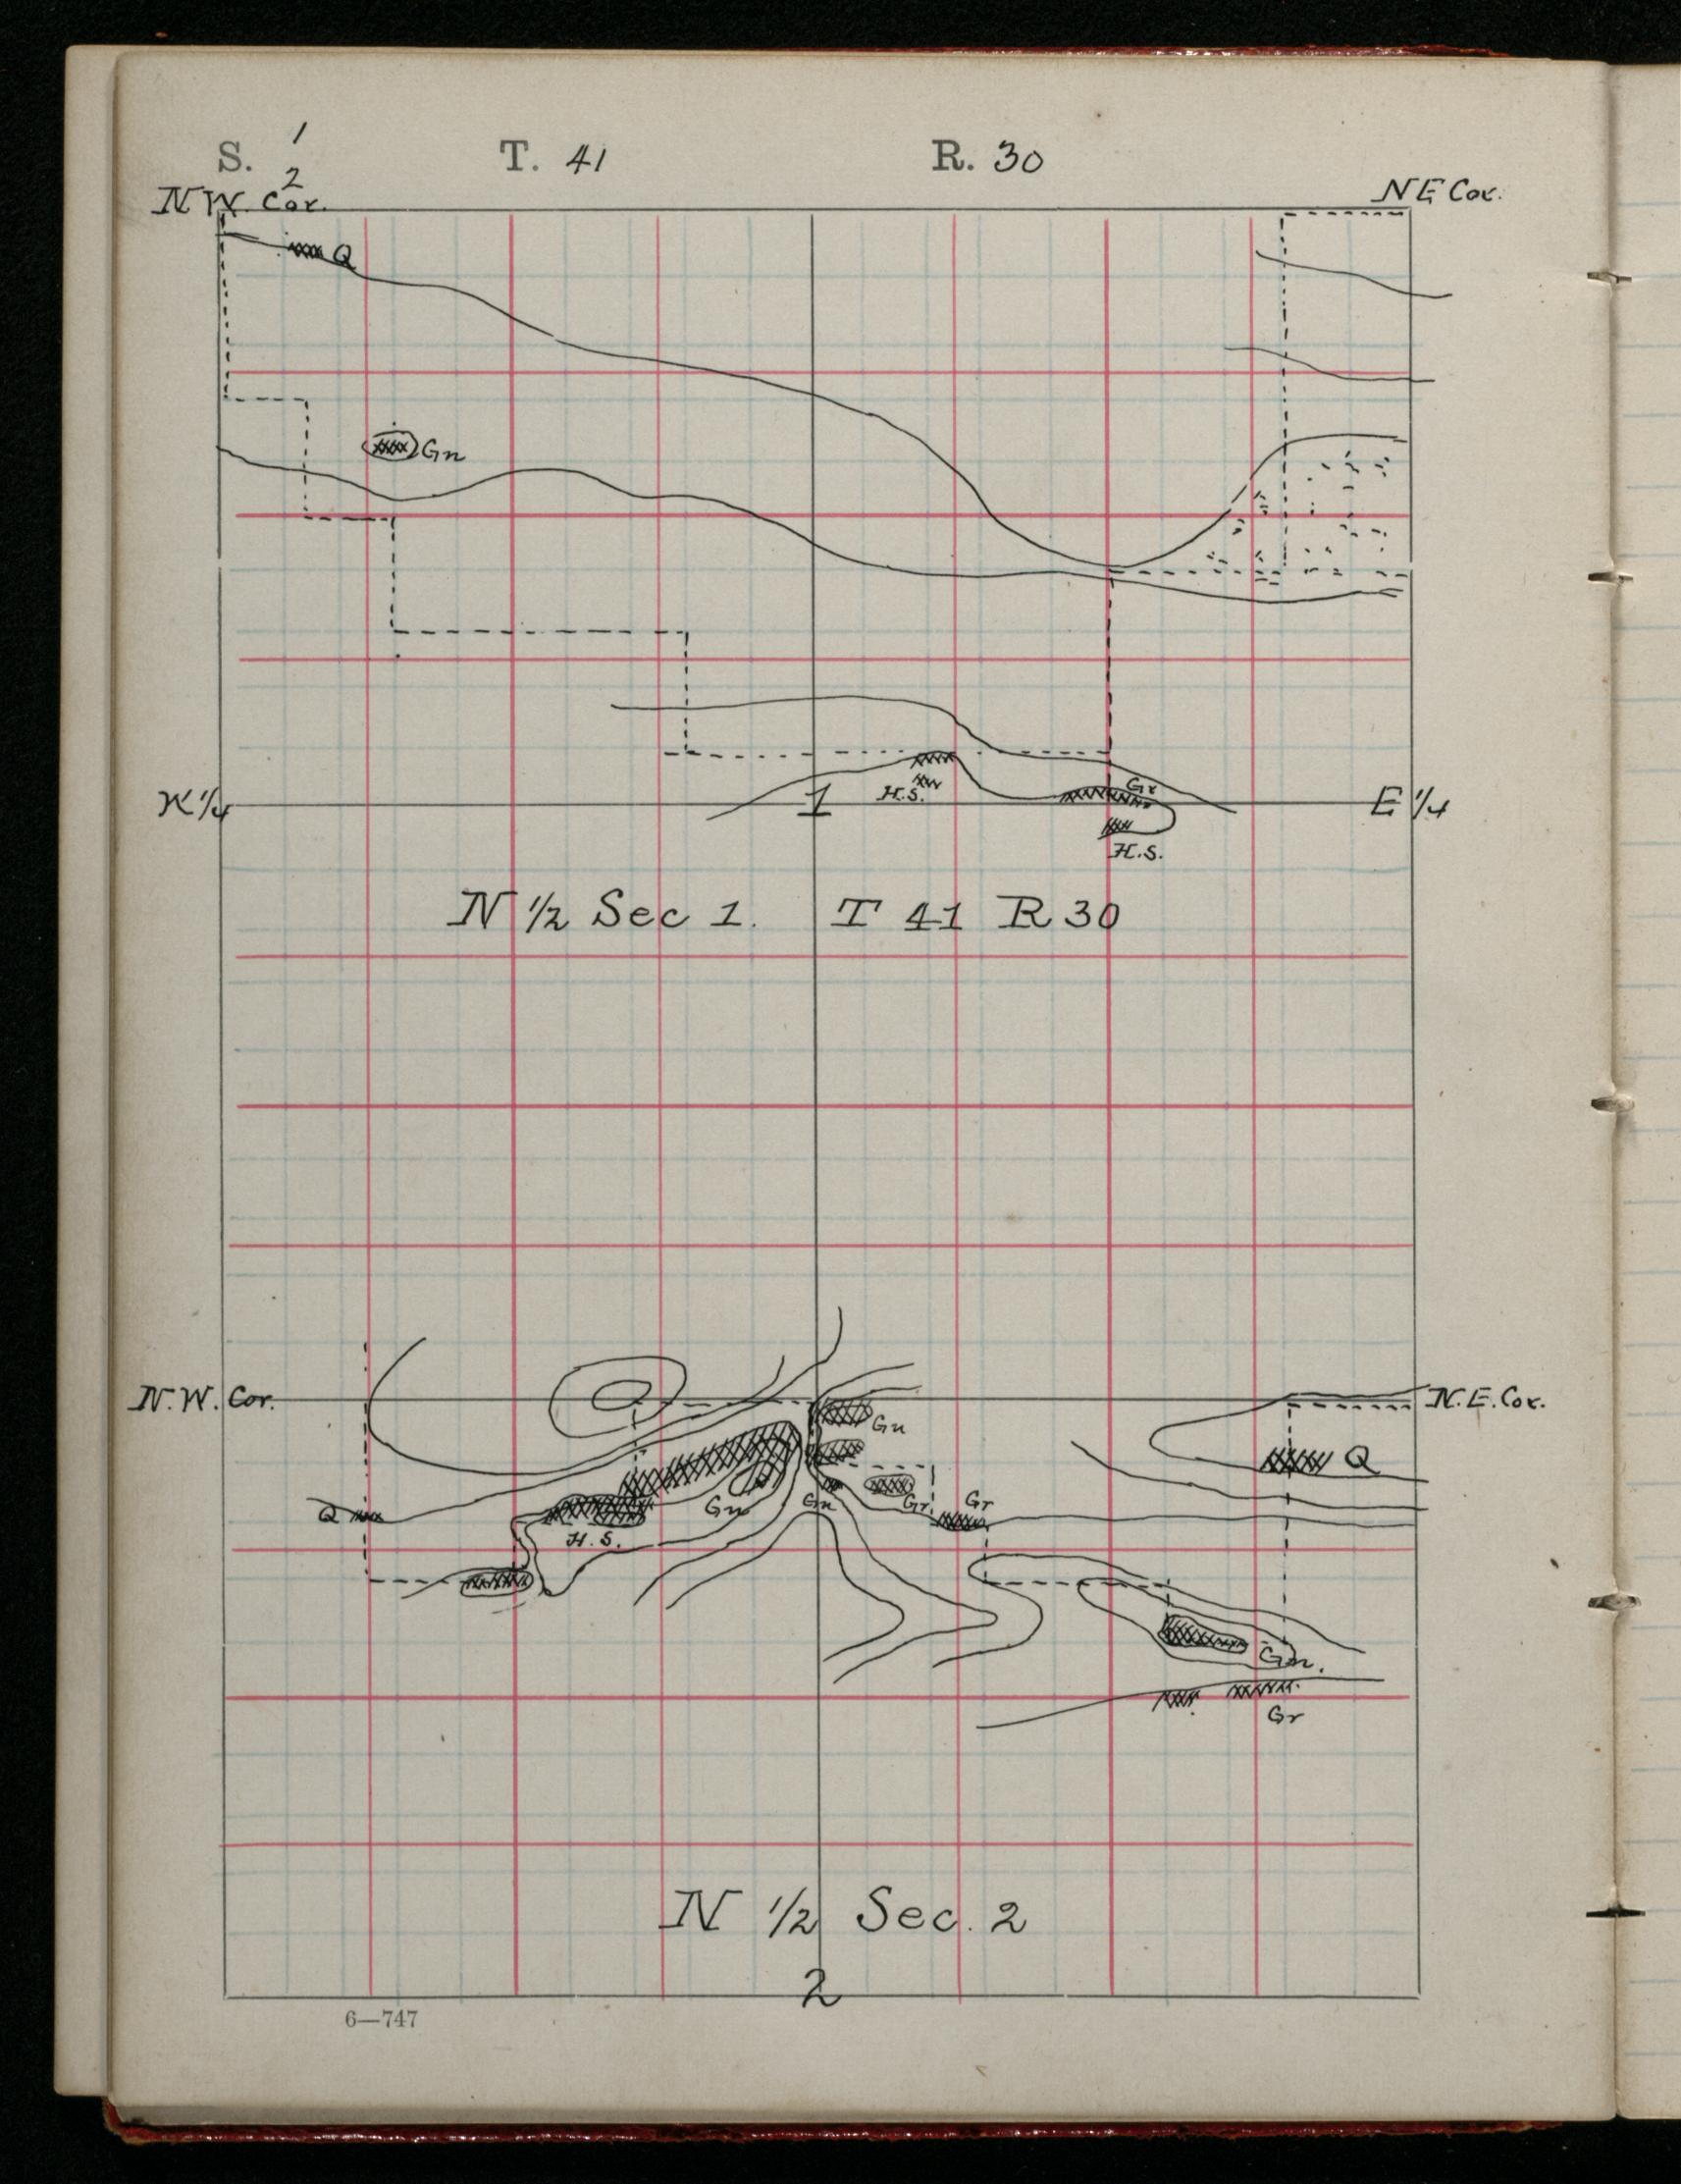 S. 1 T. 41 R. 30
2
N W. Cor. N E Cor.
Q
Gn
Gr
H.S.
W 1/4 1 E 1/4
H.S.
N 1/2 Sec 1. T 41 R 30
N.W. Cor. N.E. Cor.
Gn
Q
Gn Gn Gr. Gr
Q
H.S.
Gn.
Gr
N 1/2 Sec. 2
2
6—747